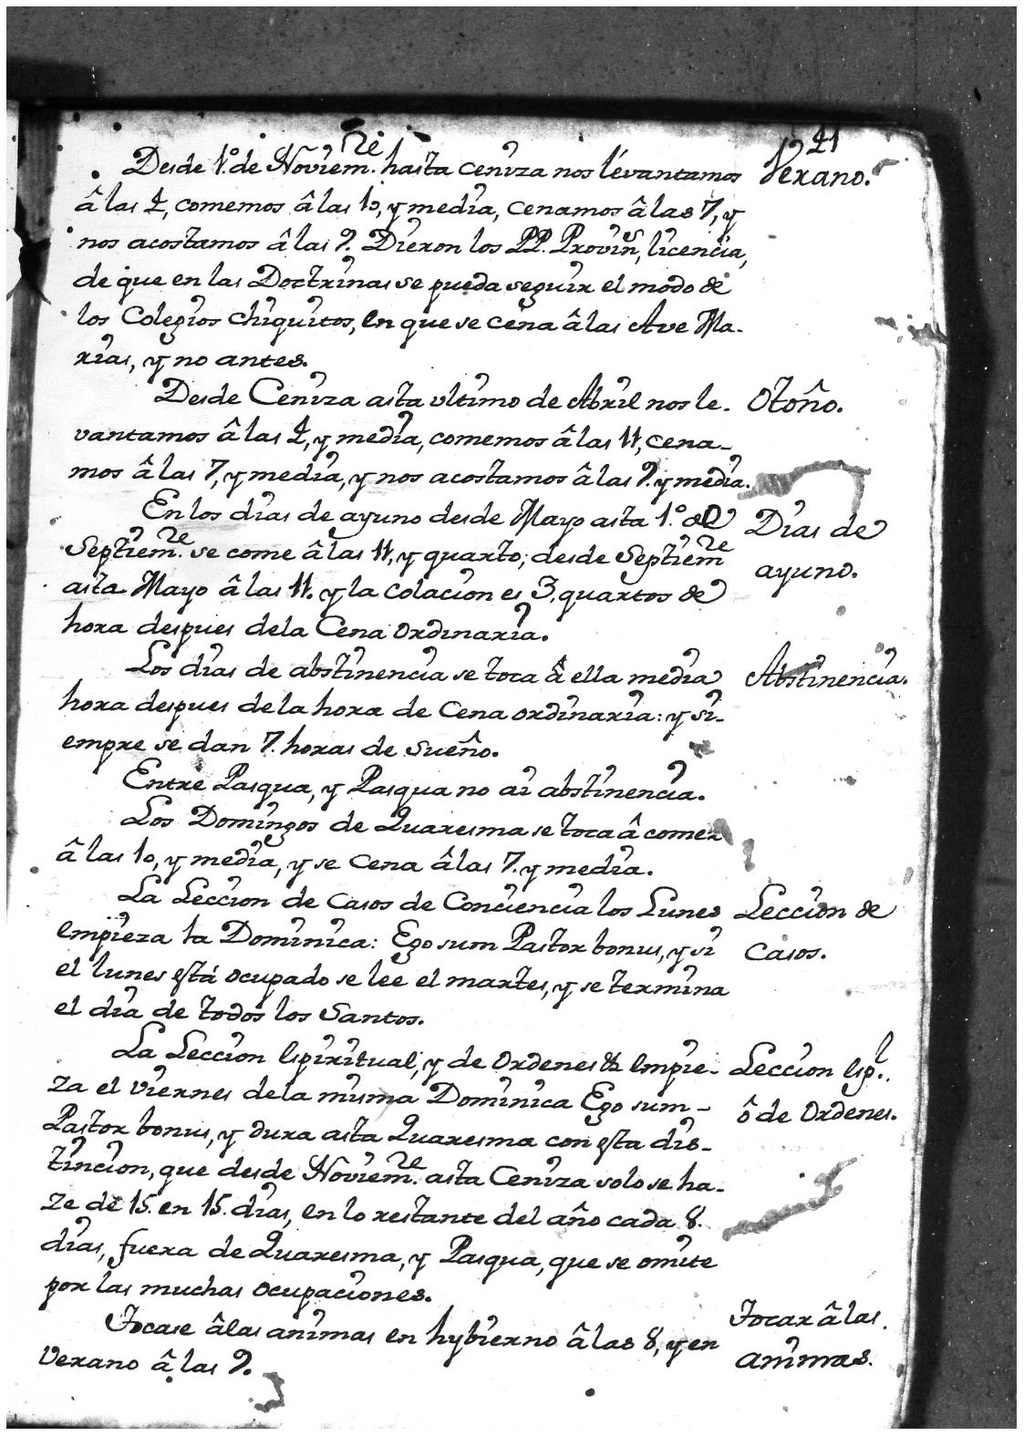 21
Desde 1.º de Noviem.re hasta ceniza nos lévantamos
Verano.
â las 4, comemos â las 10, y media, cenamos â las 7, y
nos acostamos â las 9. Dieron los PP. Provin.s, licencia,
de que en las Doctrinas se pueda seguir el modo de
los Colegios chiquitos, en que se cena â las Ave Ma-
rias, y no antes.
Desde Ceniza asta ultimo de Abril nos le-
Otoño.
vantamos â las 4, y media, comemos â las 11, cena-
mos â las 7, y media, y nos acostamos â las 9. y media.
En los dias de ayuno desde Mayo asta 1.º de
Dias de
Septiem.re se come â las 11, y quarto; desde Septiem.re
ayuno.
asta Mayo â las 11. y la colacion es 3. quartos de
hora despues dela Cena ordinaria.
Los dias de abstinencia se toca â ella media
Abstinencia.
hora despues de la hora de Cena ordinaria: y si-
empre se dan 7. horas de sueño.
Entre Pasqua, y Pasqua no ai abstinencia.
Los Domingos de Quaresma se toca â comer
â las 10, y media, y se cena â las 7. y media.
La Leccion de Casos de Conciencia los Lunes
Leccion de
empieza la Dominica: Ego sum Pastor bonus, y si
casos.
el lunes está ocupado se lee el martes, y se termina
el dia de todos los Santos.
La Leccion Espiritual, y de Ordenes &c empie-
Leccion esp.l
za el viernes de la misma Dominica Ego sum
ô de Ordenes.
Pastor bonus, y dura asta Quaresma con esta dis-
tincion, que desde Noviem.re asta Ceniza solo se ha-
ze de 15. en 15. dias, en lo restante del año cada 8.
dias, fuera de Quaresma, y Pasqua, que se omite
por las muchas ocupaciones.
Tocase âlas animas en hybierno â las 8, y en
Tocar â las
Verano â las 9.
animas.